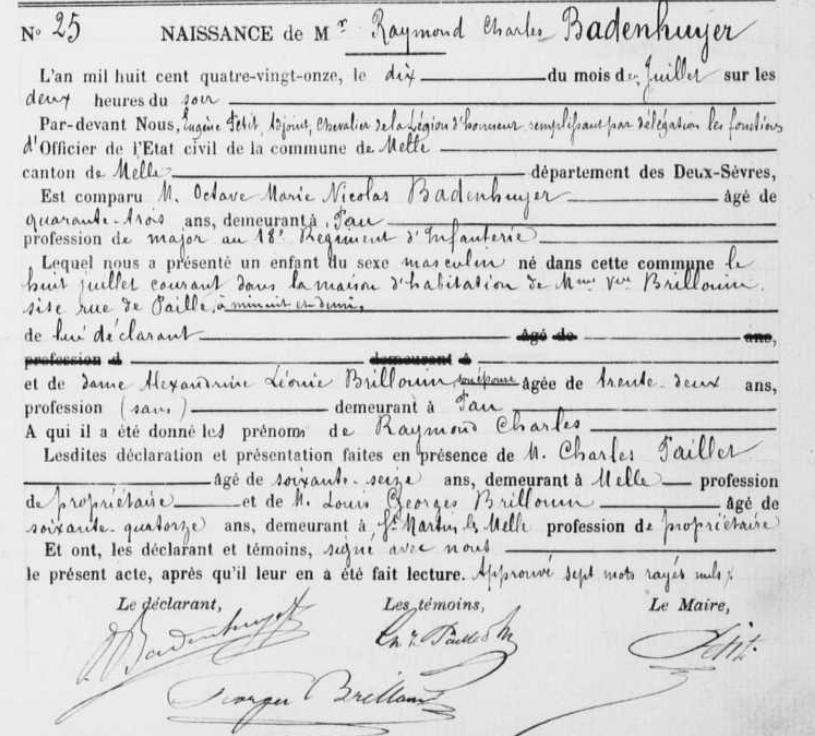 N° 25 NAISSANCE de Mr Raymond Charles Badenhuyer
L'an mil huit cent quatre-vingt-onze, le dix du mois de Juillet sur les
deux heures du soir
Par-devant Nous, Eugène Petit, Adjoint, Chevalier de la Légion d'honneur remplissant par délégation les fonctions
d'Officier de l'Etat civil de la commune de Melle
canton de Melle département des Deux-Sèvres,
Est comparu M. Octave Marie Nicolas Badenhuyer âgé de
quarante-trois ans, demeurant à Pau
profession de major au 18e Régiment d'Infanterie
Lequel nous a présenté un enfant du sexe masculin né dans cette commune le
huit juillet courant dans la maison d'habitation de Mme Vve Brillouin
sise rue de Paille, à minuit et demi,
de lui déclarant âgé de ans,
profession d demeurant à
et de dame Alexandrine Léonie Brillouin son épouse âgée de trente-deux ans,
profession (sans) demeurant à Pau
A qui il a été donné les prénoms de Raymond Charles
Lesdites déclaration et présentation faites en présence de M. Charles Paillet
âgé de soixante-seize ans, demeurant à Melle profession
de propriétaire et de M. Louis Georges Brillouin âgé de
soixante-quatorze ans, demeurant à St Martin lès Melle profession de propriétaire
Et ont, les déclarant et témoins, signé avec nous
le présent acte, après qu'il leur en a été fait lecture. Approuvé sept mots rayés nuls.
Le déclarant, Les témoins, Le Maire,
Badenhuyer Petit
Georges Brillouin